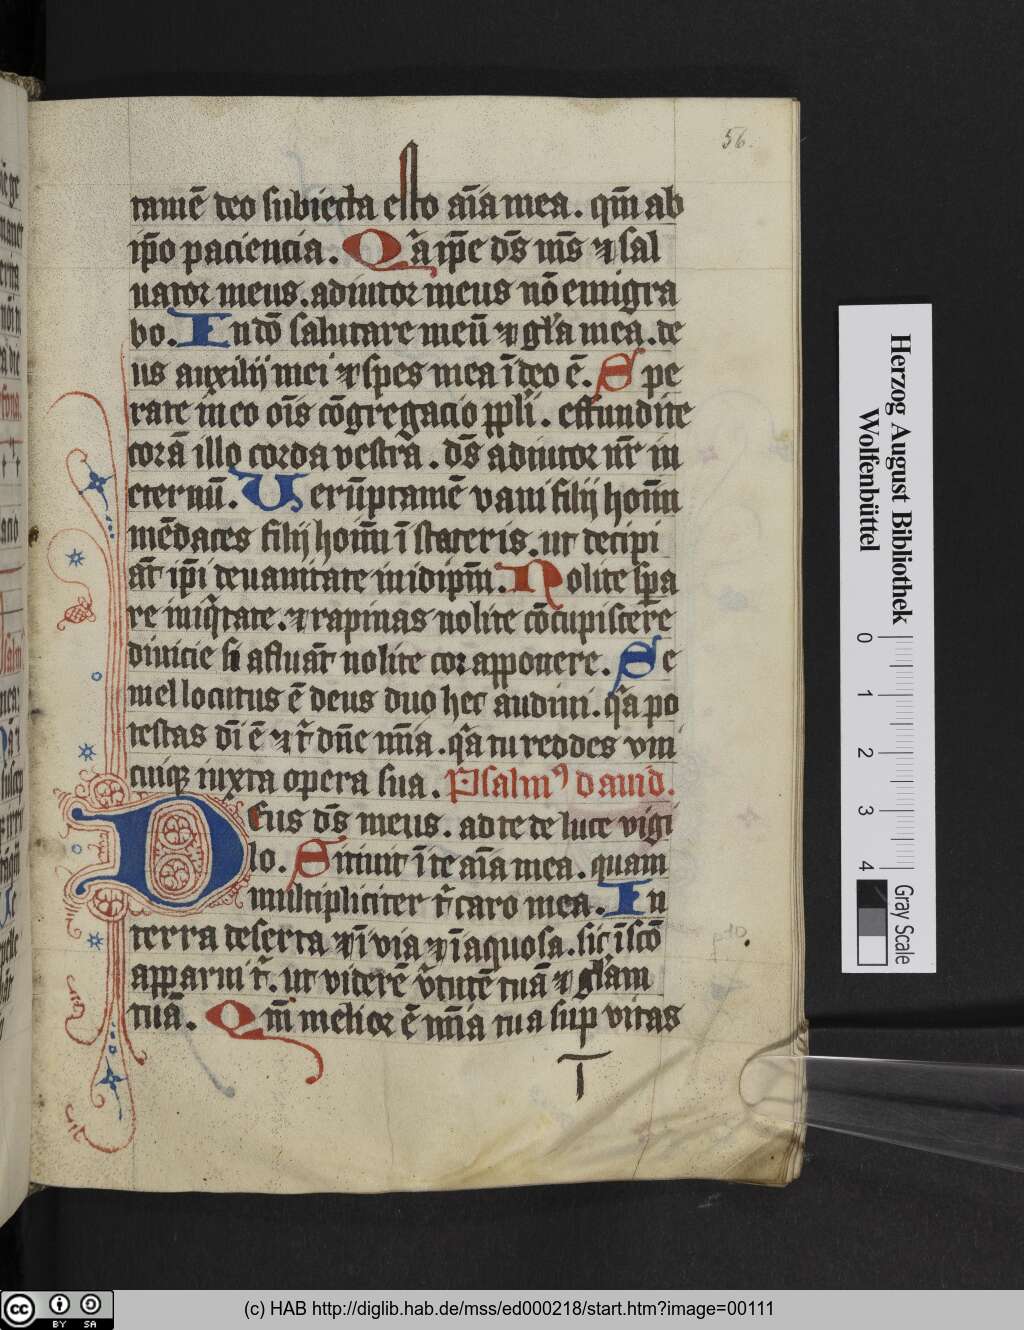 56.
tamē deo subiecta esto aīa mea. qm̄ ab
ip̄o paciencia. Qͣa ip̄e ds̄ ms̄ ⁊ sal
uator meus. adiutor meus nō emigra
bo. In dō salutare meū ⁊ gl̄a mea. de
us auxilij mei ⁊ spes mea ī deo ē. Spe
rate in eo oīs cōgregacio ppl̄i. effundite
corā illo corda vestra. ds̄ adiutor nr̄ in
eternū. Verūptamē vani filij hoīm
mēdaces filij hoīm ī stateris. ut decipi
āt ip̄i de vanitate in idipm̄. Nolite spa
re iniq̄tate. ⁊ rapinas nolite cōcupiscere
diuicie si afluāt nolite cor apponere. Se
mel locutus ē deus duo hec audiui. qͣa po
testas dī ē ⁊ t̄ dn̄e mīa. qͣa tu reddes vni
cuiqꝫ iuxta opera sua. Psalmꝰ dauid.
Deus ds̄ meus. ad te de luce vigi
lo. Sitiuit ī te aīa mea. quam
multipliciter t̄ caro mea. In
terra deserta ⁊ ī via ⁊ īaquosa. sic ī sc̄o
apparui t̄. ut viderē v̄tutē tuā ⁊ gl̄am
tuā. Qm̄ melior ē mīa tua sup vitas
Herzog August Bibliothek
Wolfenbüttel
0 1 2 3 4
Gray Scale
cc BY SA
(c) HAB http://diglib.hab.de/mss/ed000218/start.htm?image=00111